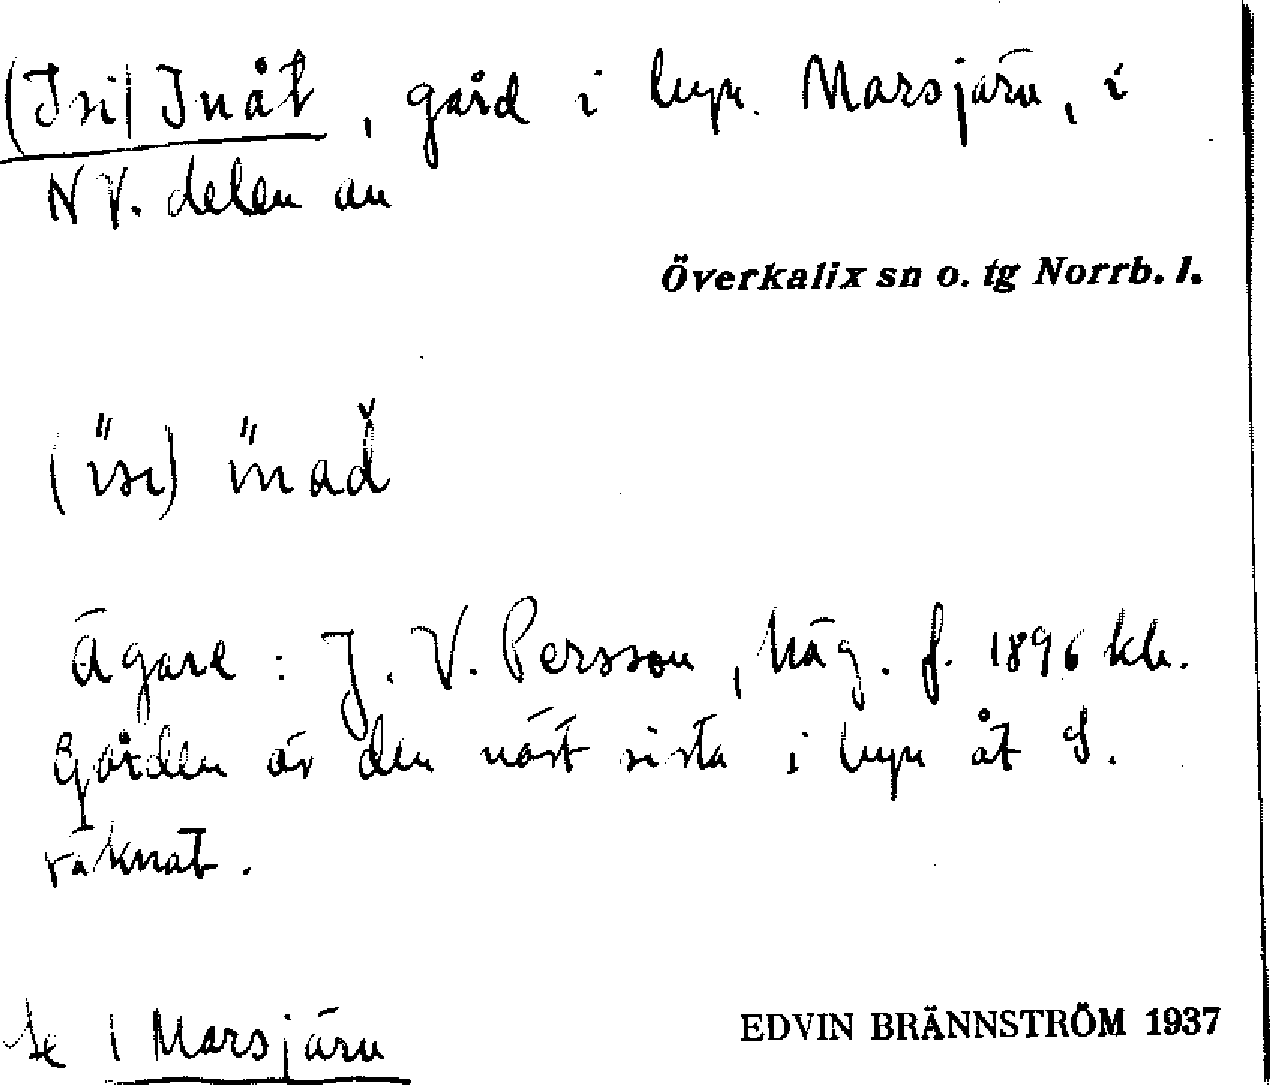 (Isi) Inåt, gård i byn. Marsjärv, i
NV. delen av
Överkalix sn o. tg Norrb. l.
Ägare: J. V. Persson, häg. f. 1896 kh.
Gården är den näst sista i byn åt S.
räknat.
se 1 Marsjärv
EDVIN BRÄNNSTRÖM 1937